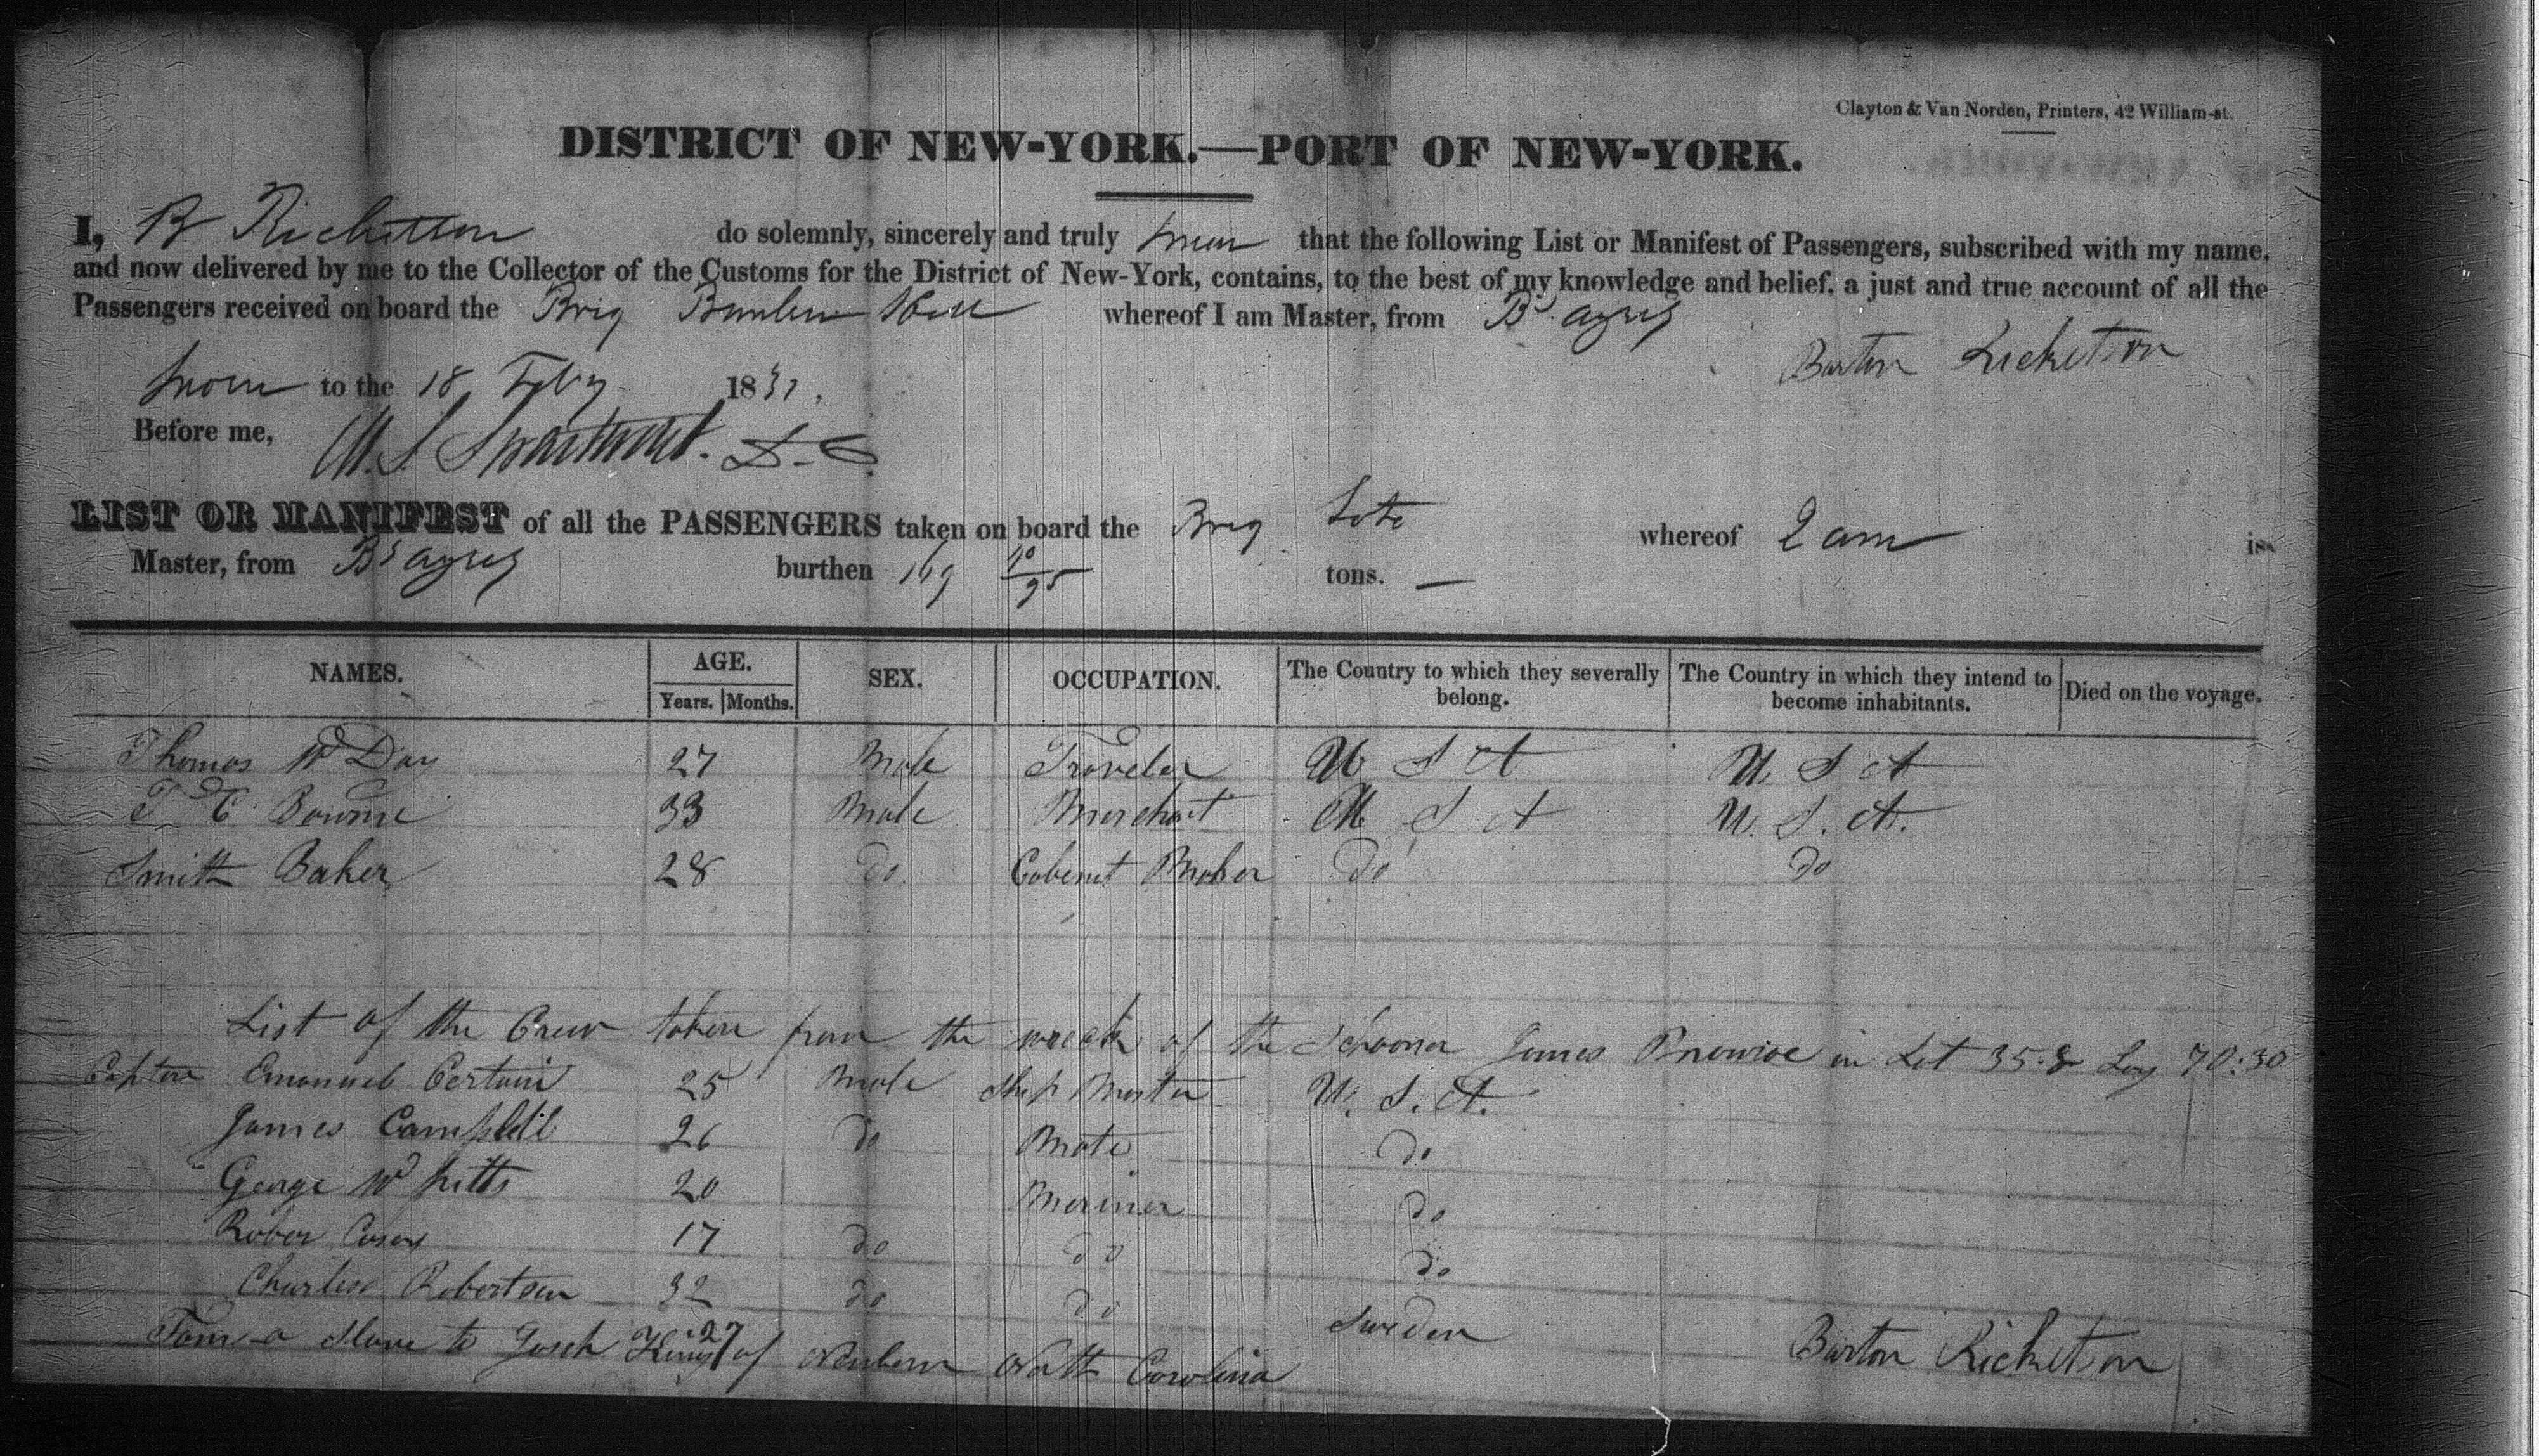 Clayton & Van Norden, Printers, 42 William-st.
DISTRICT OF NEW-YORK.—PORT OF NEW-YORK.
I, B Ricketson do solemnly, sincerely and truly swear that the following List or Manifest of Passengers, subscribed with my name,
and now delivered by me to the Collector of the Customs for the District of New-York, contains, to the best of my knowledge and belief, a just and true account of all the
Passengers received on board the Brig Bunker Hill whereof I am Master, from Bs ayres
Barton Ricketson
Sworn to the 18 Feby 1831.
Before me, M. S Swartwout. D. C.
LIST OR MANIFEST of all the PASSENGERS taken on board the Brig whereof I am is
Master, from Bs ayres burthen 169 tons. —
NAMES. AGE. SEX. OCCUPATION. The Country to which they severally belong. The Country in which they intend to become inhabitants. Died on the voyage.
Years. Months.
Thomas W Day 27 Male Traveler U S A U. S A
T C Bowne 33 Male Merchant U S A U. S. A.
Smith Baker 28 do Cabenet Maker do do
List of the Crew taken from the wreck of the Schooner James in Lat 35.8 Log 70:30
Emanuel Certain 25 Male Ship Master U. S. A.
James Campbell 26 do Mate do
George W 20 Mariner do
Rober Casey 17 do do do
Charles Robertson 32 do do Sweden
Tom a Slave to King 27 of Newbern North Carolina
Barton Ricketson